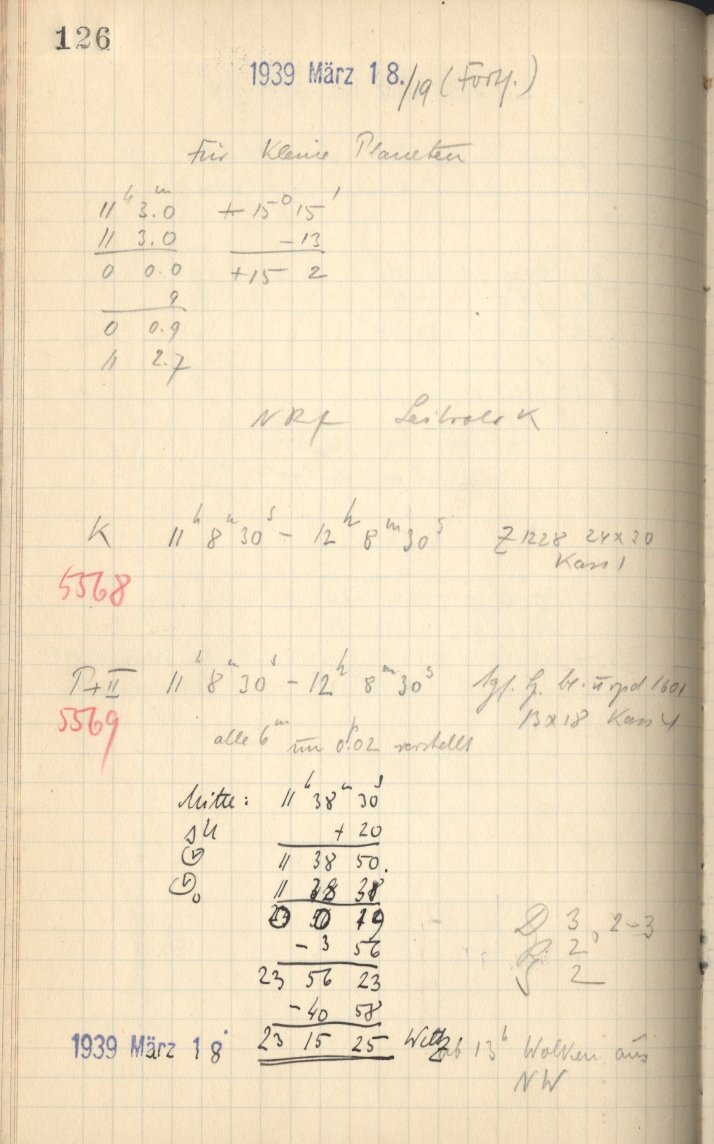 126
1939 März 18./19 (Forts.)
Für Kleine Planeten
11ʰ 3.ᵐ0 +15° 15'
11 3.0 -13
0 0.0 +15 2
9
0 0.9
11 2.7
K 11ʰ 8ᵐ 30ˢ - 12ʰ 8ᵐ 30ˢ Z 1228 24x30
Kass 1
5568
T+II 11ʰ 8ᵐ 30ˢ - 12ʰ 8ᵐ 30ˢ 1601
5569 13x18 Kass 4
alle 6ᵐ um 0.02 verstellt
Mitte: 11ʰ 38ᵐ 30ˢ
+ 20
11 38 50.
11 38
- 3 56
23 56 23
- 40 58
1939 März 18 23 15 25 Weltz
D 3, 2-3
2
2
ab 13ʰ Wolken aus
NW